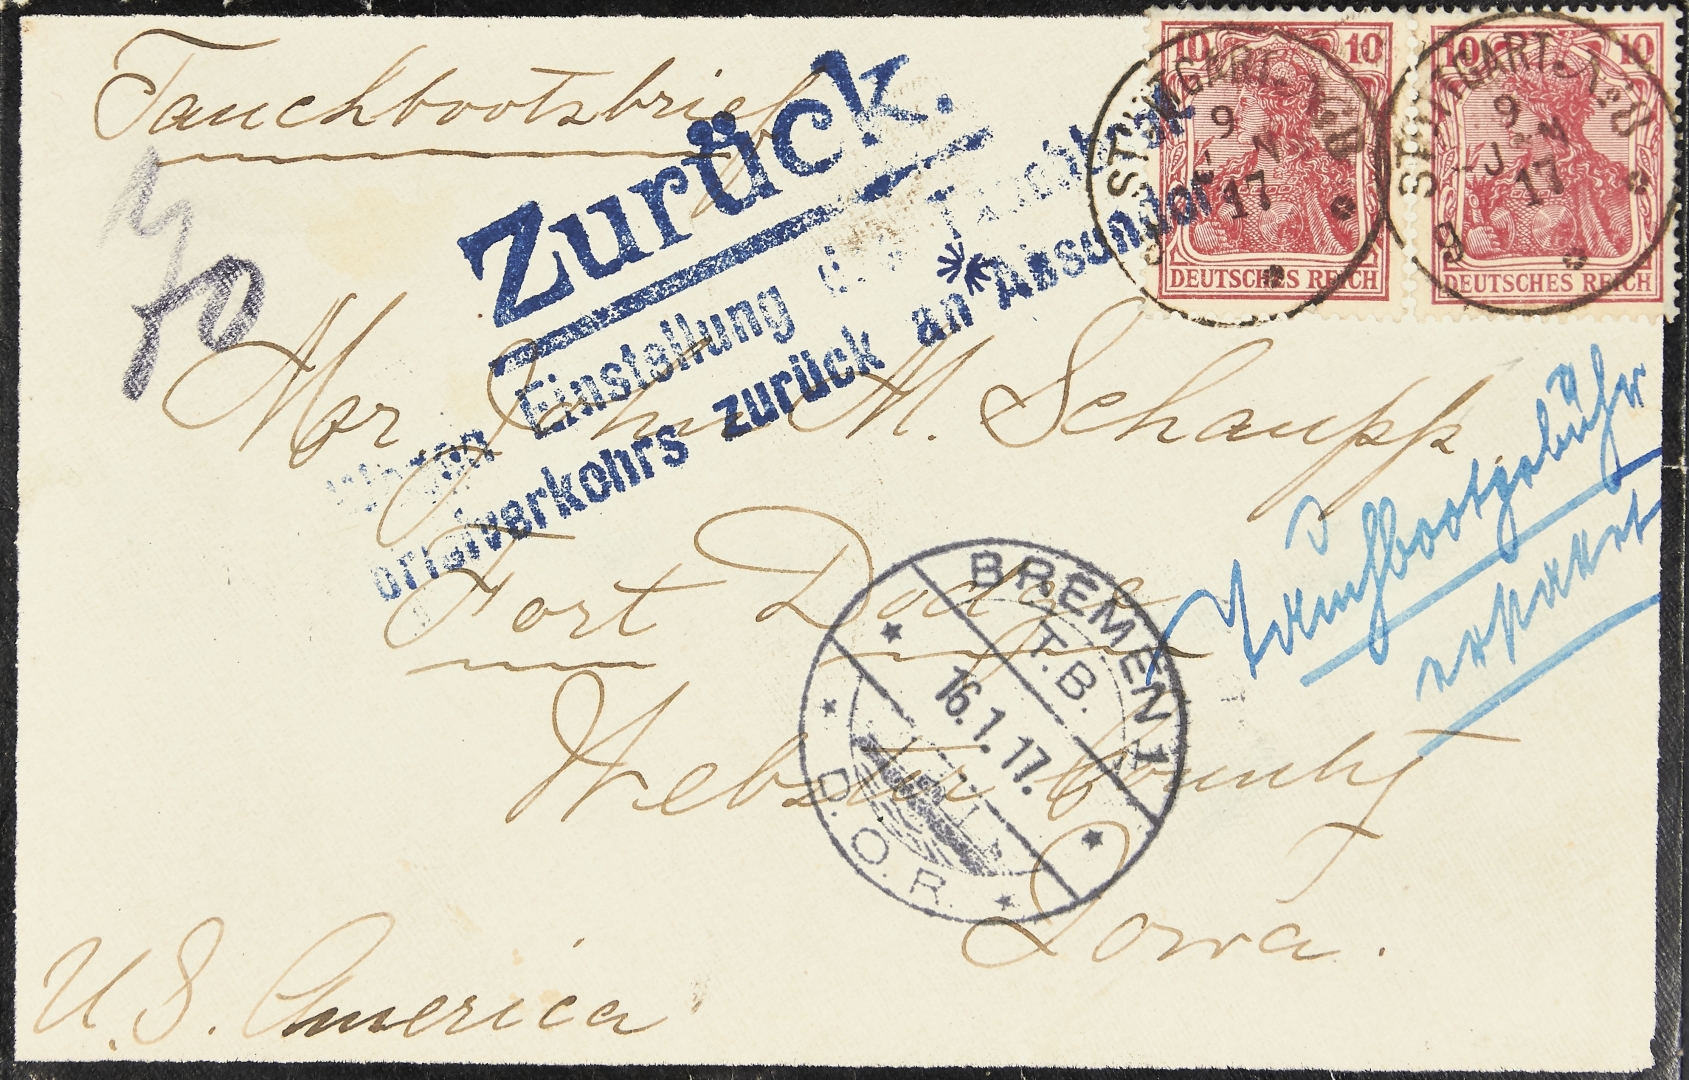 Tauchbootsbrief
Zurück.
Wegen Einstellung des Tauchboot
briefverkehrs zurück an Absender
10 10
DEUTSCHES REICH
10 10
DEUTSCHES REICH
STUTTGART No
9
JAN
17
STUTTGART No
9
JAN
17
9
70
Mr John M. Schaupp
Fort Dodge
Webster County
Iowa.
U. S. America
Tauchbootgebühr
erstattet
BREMEN 1
T.B.
16.1.17.
D.O.R.